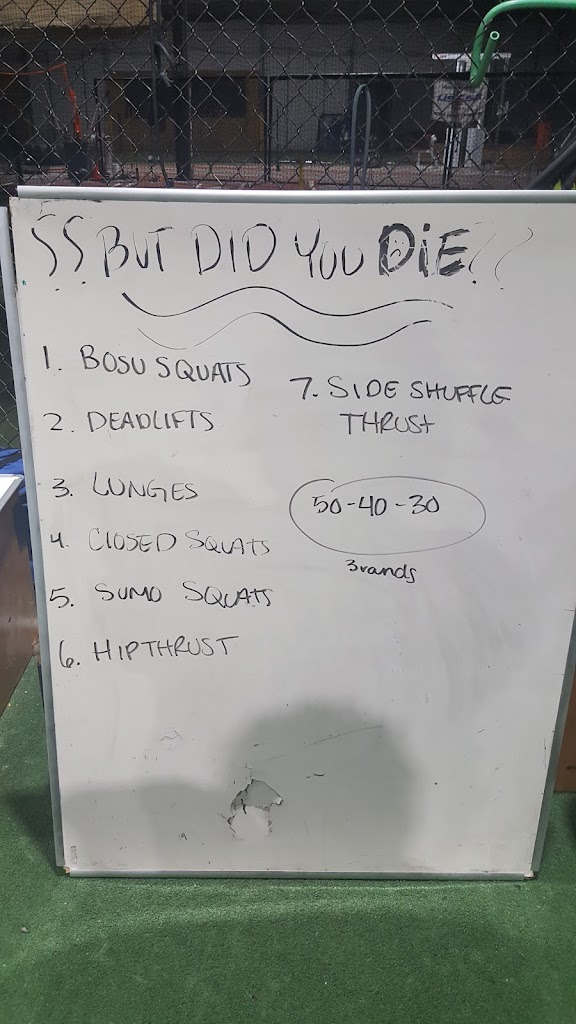 ¿¿BUT DID YOU DIE??
1. BOSU SQUATS
2. DEADLIFTS
3. LUNGES
4. CLOSED SQUATS
5. SUMO SQUATS
6. HIPTHRUST
7. SIDE SHUFFLE
THRUST
50-40-30
3rands